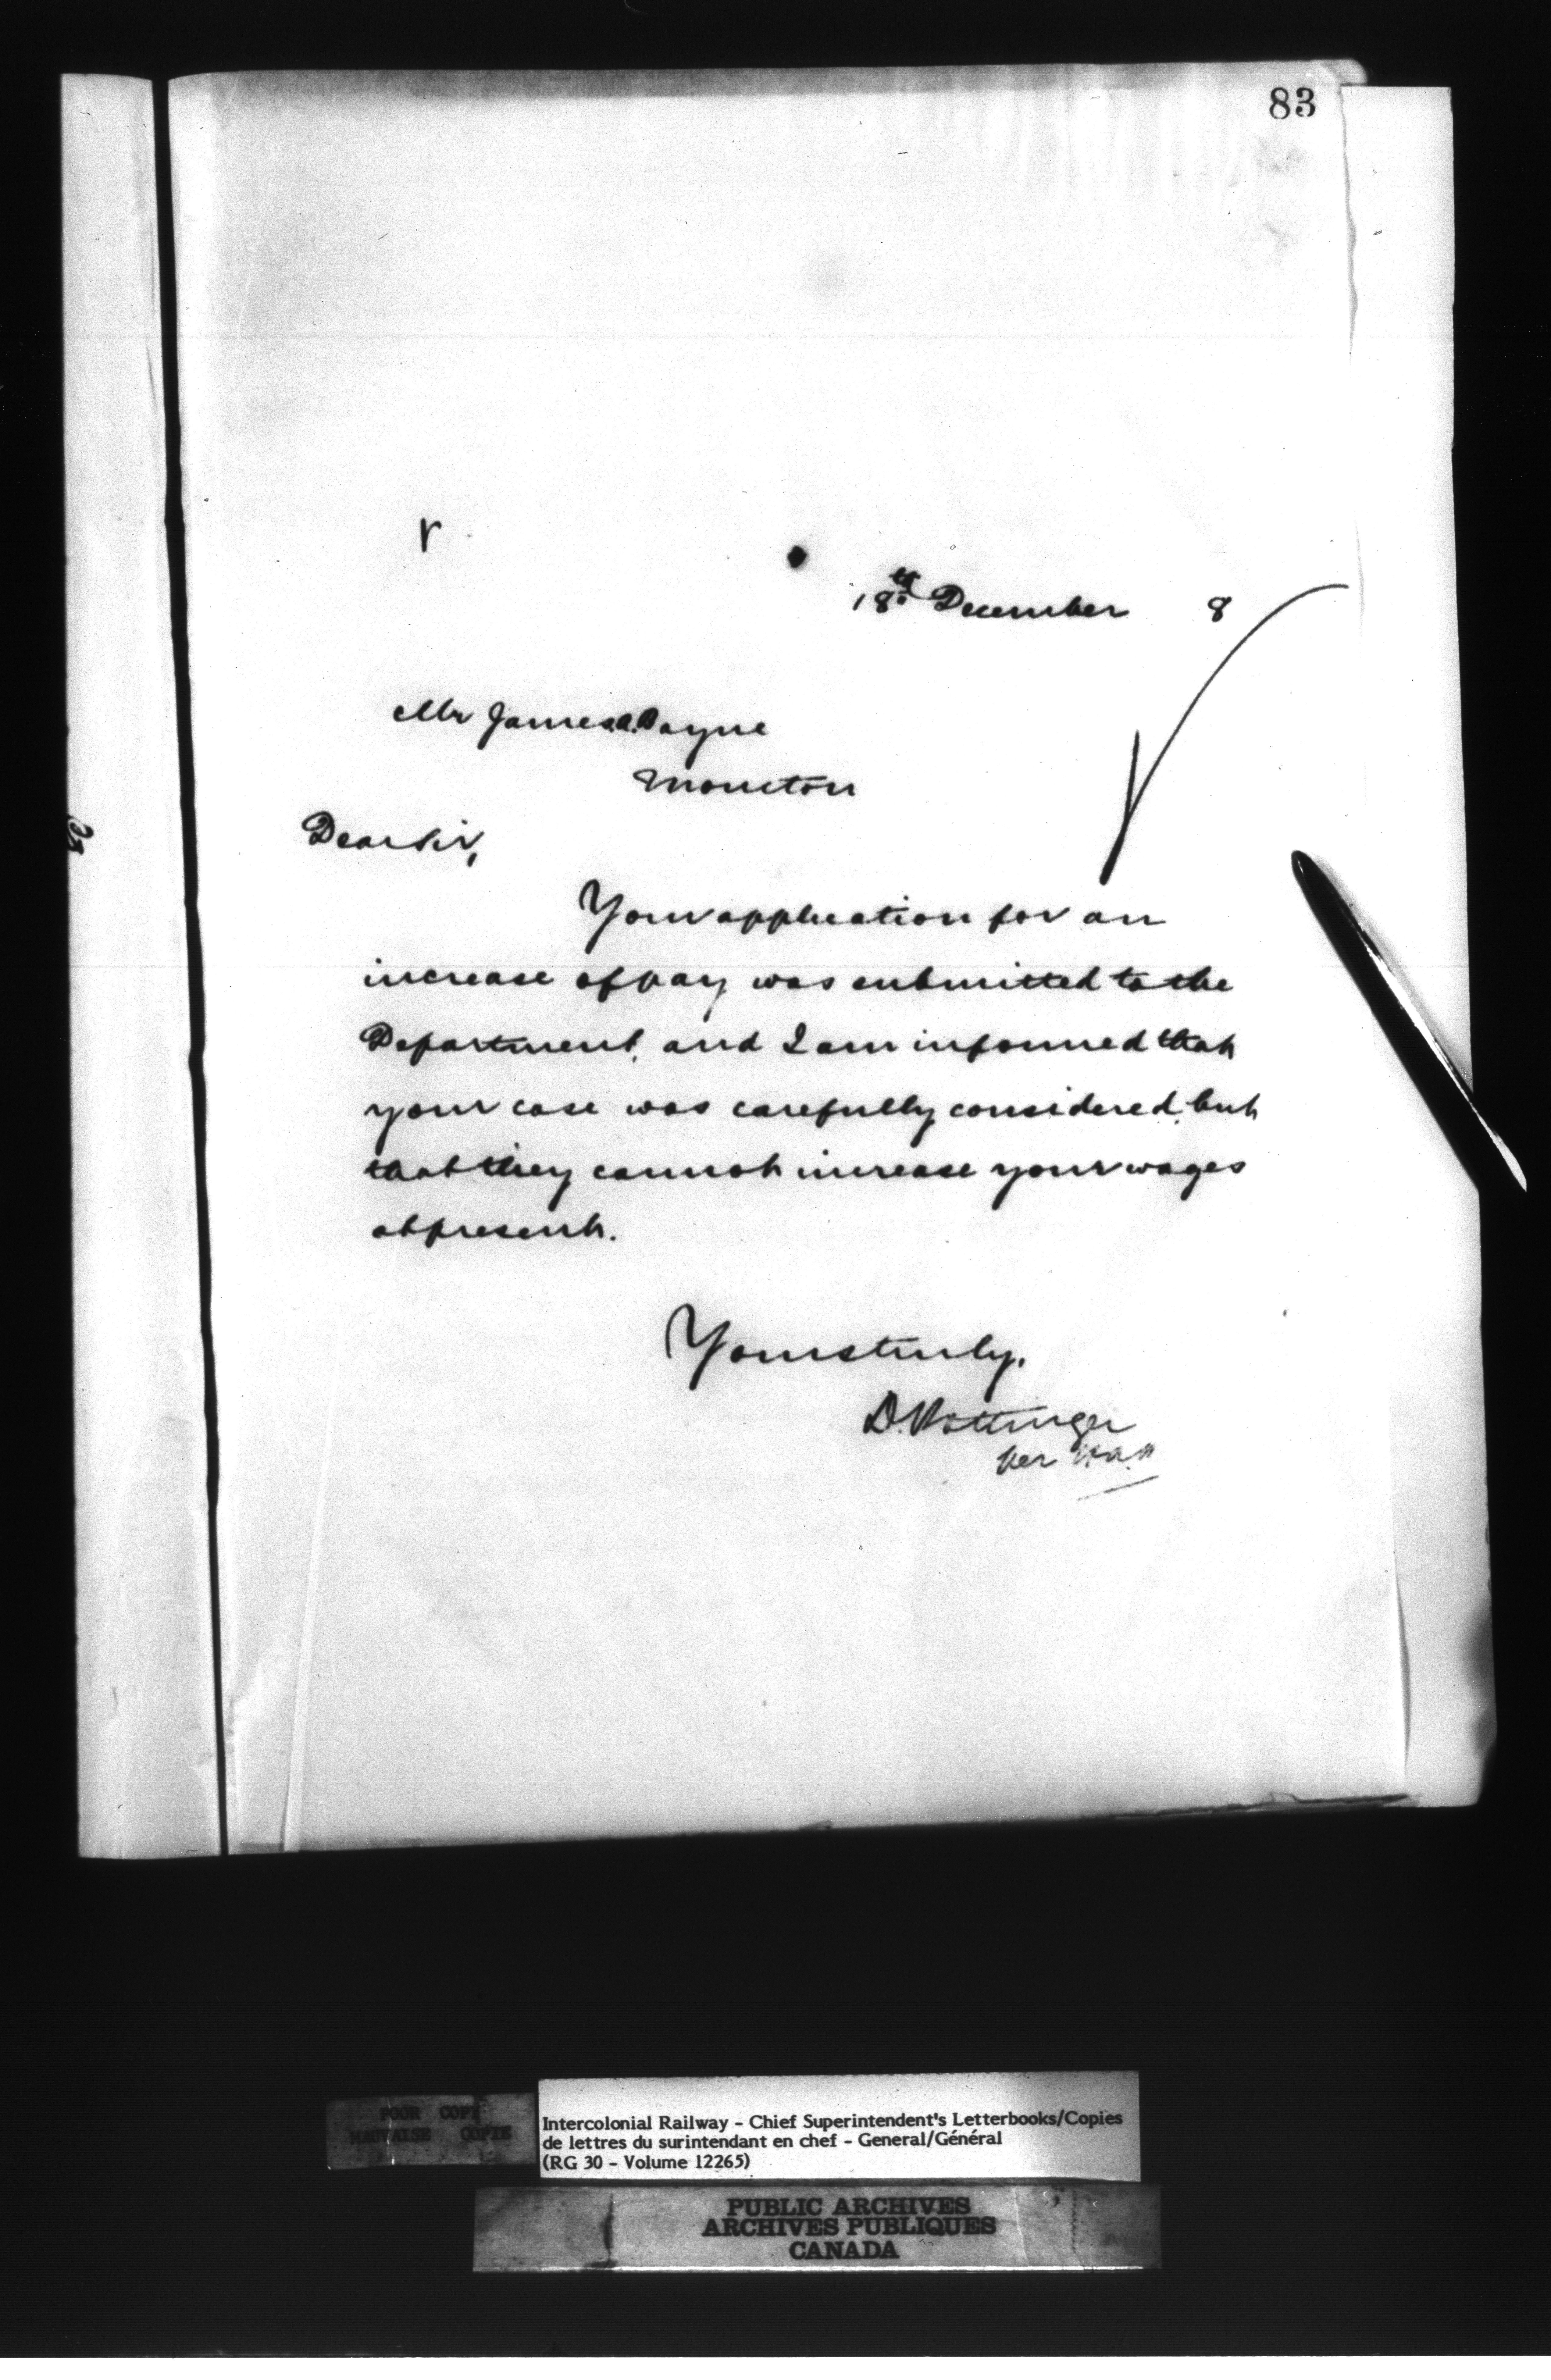 83
r
18th December 8
Mr James A. Bayne
Moncton
Dear Sir,
Your application for an
increase of pay was submitted to the
Department, and I am informed that
your case was carefully considered, but
that they cannot increase your wages
at present.
Yours truly,
D. Pottinger
per
POOR COPY
MAUVAISE COPIE
Intercolonial Railway - Chief Superintendent's Letterbooks/Copies
de lettres du surintendant en chef - General/Général
(RG 30 - Volume 12265)
PUBLIC ARCHIVES
ARCHIVES PUBLIQUES
CANADA